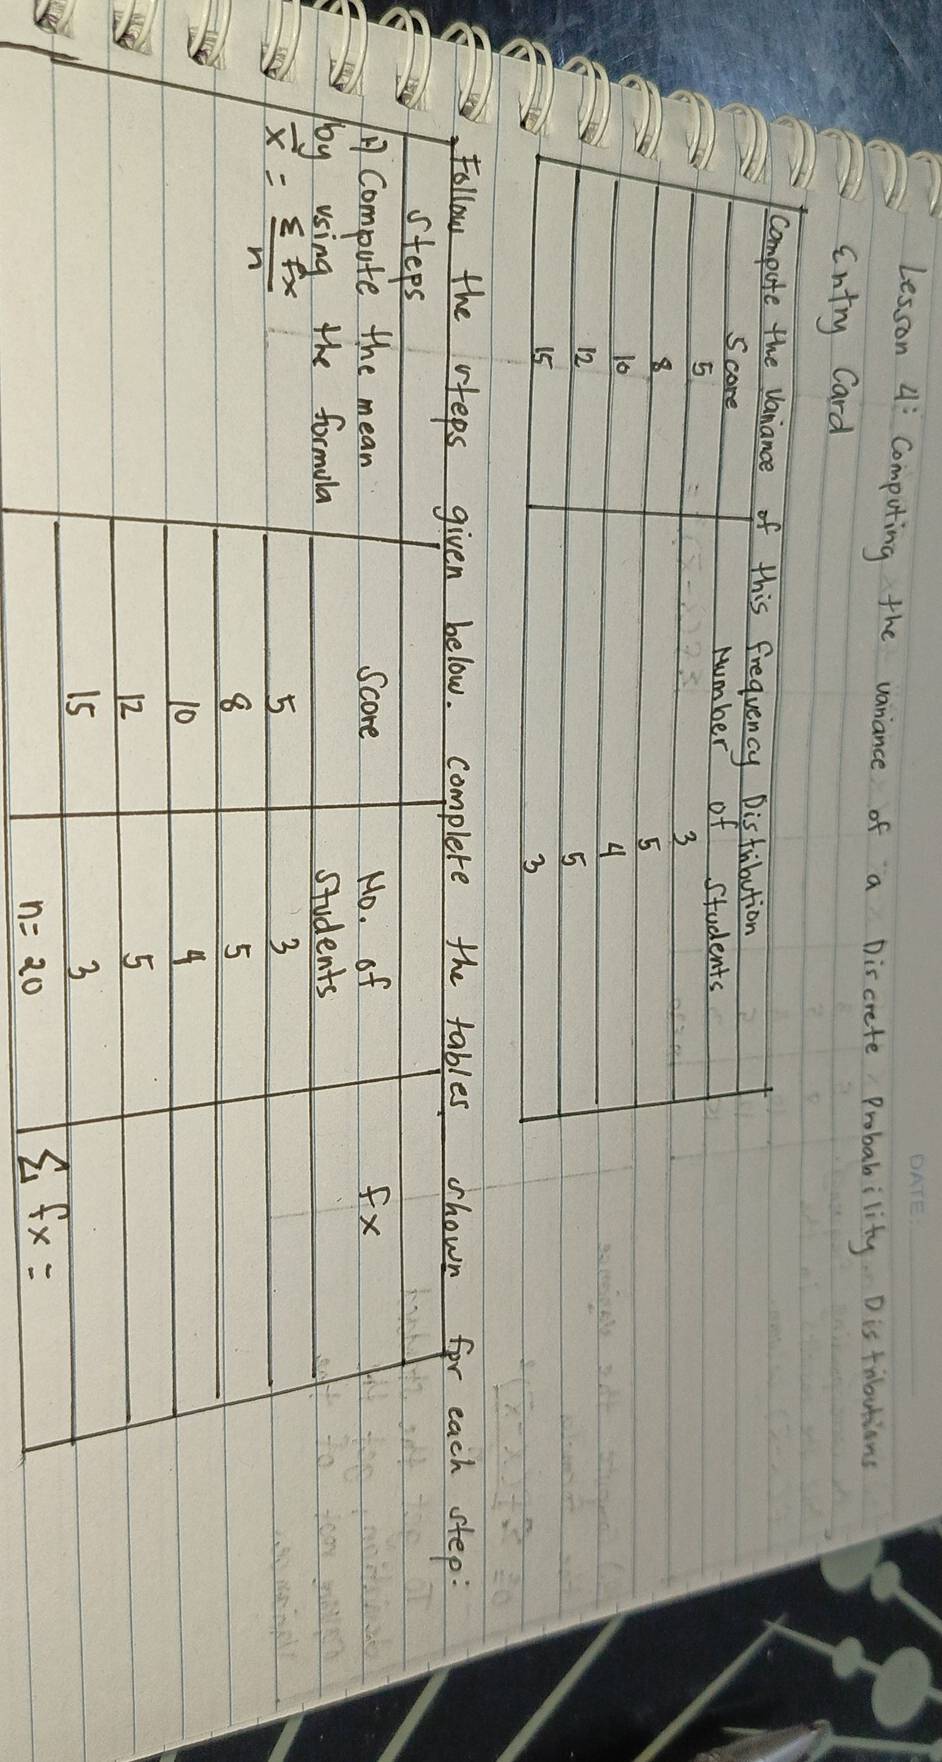 DATE:
Lesson 4: Computing the variance of a Discrete Probability Distributions
Entry Card
Compute the Variance of this frequency Distribution
Score Number of students
5 3
8 5
10 4
12 5
15 3
Follow the steps given below. Complete the tables shown for each step:
Steps
1) Compute the mean Score No. of fx
by using the formula students
x̄ = Σ fx / n 5 3
8 5
10 4
12 5
15 3
n= 20 Σ fx =